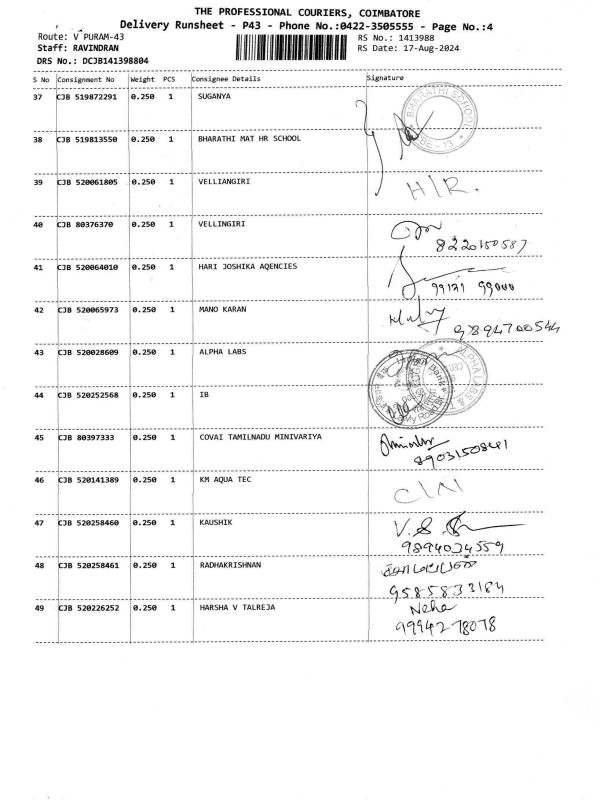 THE PROFESSIONAL COURIERS, COIMBATORE
Delivery Runsheet - P43 - Phone No.:0422-3505555 - Page No.:4
Route: V PURAM-43
RS No.: 1413988
Staff: RAVINDRAN
RS Date: 17-Aug-2024
DRS No.: DCJB141398804
S No Consignment No Weight PCS Consignee Details Signature
37 CJB 519872291 0.250 1 SUGANYA
BHARATHI SCHOOL
38 CJB 519813550 0.250 1 BHARATHI MAT HR SCHOOL
39 CJB 520061805 0.250 1 VELLIANGIRI H/R.
40 CJB 80376370 0.250 1 VELLINGIRI
8220150587
41 CJB 520064010 0.250 1 HARI JOSHIKA AQENCIES
99121 99000
42 CJB 520065973 0.250 1 MANO KARAN
9894700544
43 CJB 520028609 0.250 1 ALPHA LABS
ALPHA LABS
44 CJB 520252568 0.250 1 IB
45 CJB 80397333 0.250 1 COVAI TAMILNADU MINIVARIYA
46 CJB 520141389 0.250 1 KM AQUA TEC
47 CJB 520258460 0.250 1 KAUSHIK V.S
9894034559
48 CJB 520258461 0.250 1 RADHAKRISHNAN
9585833184
49 CJB 520226252 0.250 1 HARSHA V TALREJA Neha
9994278078